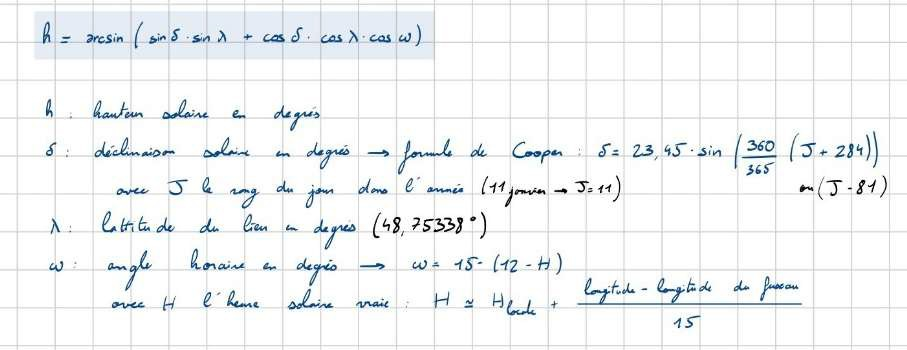 h = arcsin (sin δ · sin λ + cos δ · cos λ · cos ω)
h : hauteur solaire en degrés
δ : déclinaison solaire en degrés → formule de Cooper : δ = 23,45 · sin (360/365 (J + 284))
avec J le rang du jour dans l'année (11 janvier → J = 11) ou (J - 81)
λ : lattitude du lieu en degrés (48,75338°)
ω : angle horaire en degrés → ω = 15 · (12 - H)
avec H l'heure solaire vraie : H ≃ H locale + (longitude - longitude du fuseau)/15